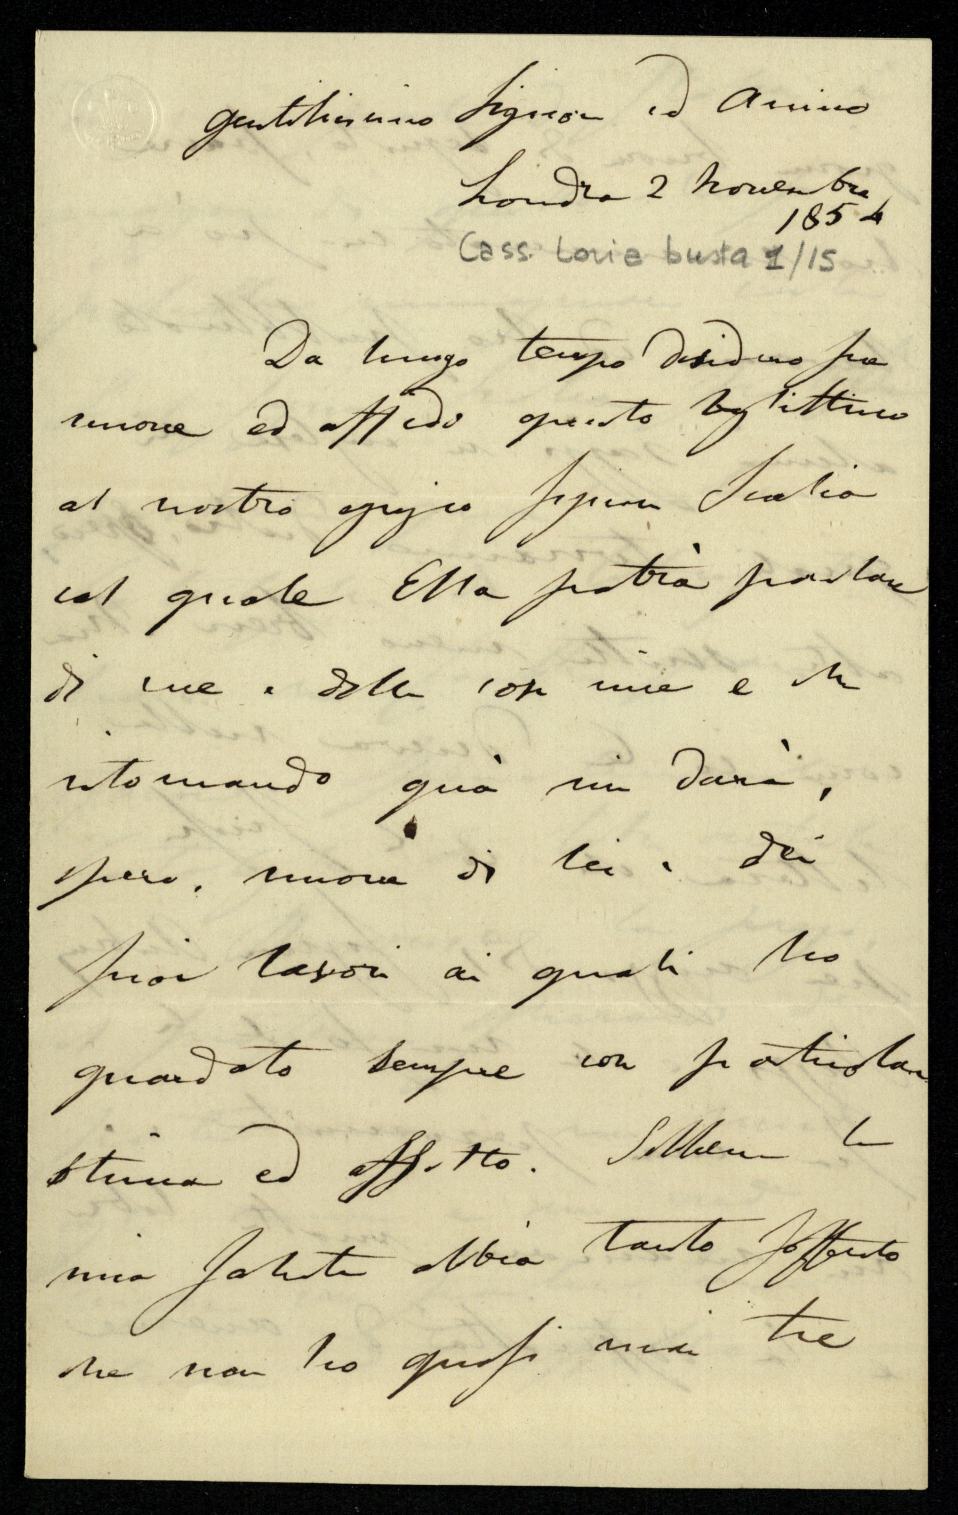 Gentilissimo Signore ed Amico
Londra 2 Novembre
1854
Cass. Loria busta 1/15
Da lungo tempo desidero sue
nuove ed affido questo bigliettino
al nostro egregio Signor Scalia
col quale Ella potrà parlare
di me e delle cose mie e che
ritornando quà mi darà,
spero, nuove di lei e dei
suoi lavori ai quali ho
guardato sempre con particolare
stima ed affetto. Sebbene la
mia salute abbia tanto sofferto
che non ho quasi mai tre